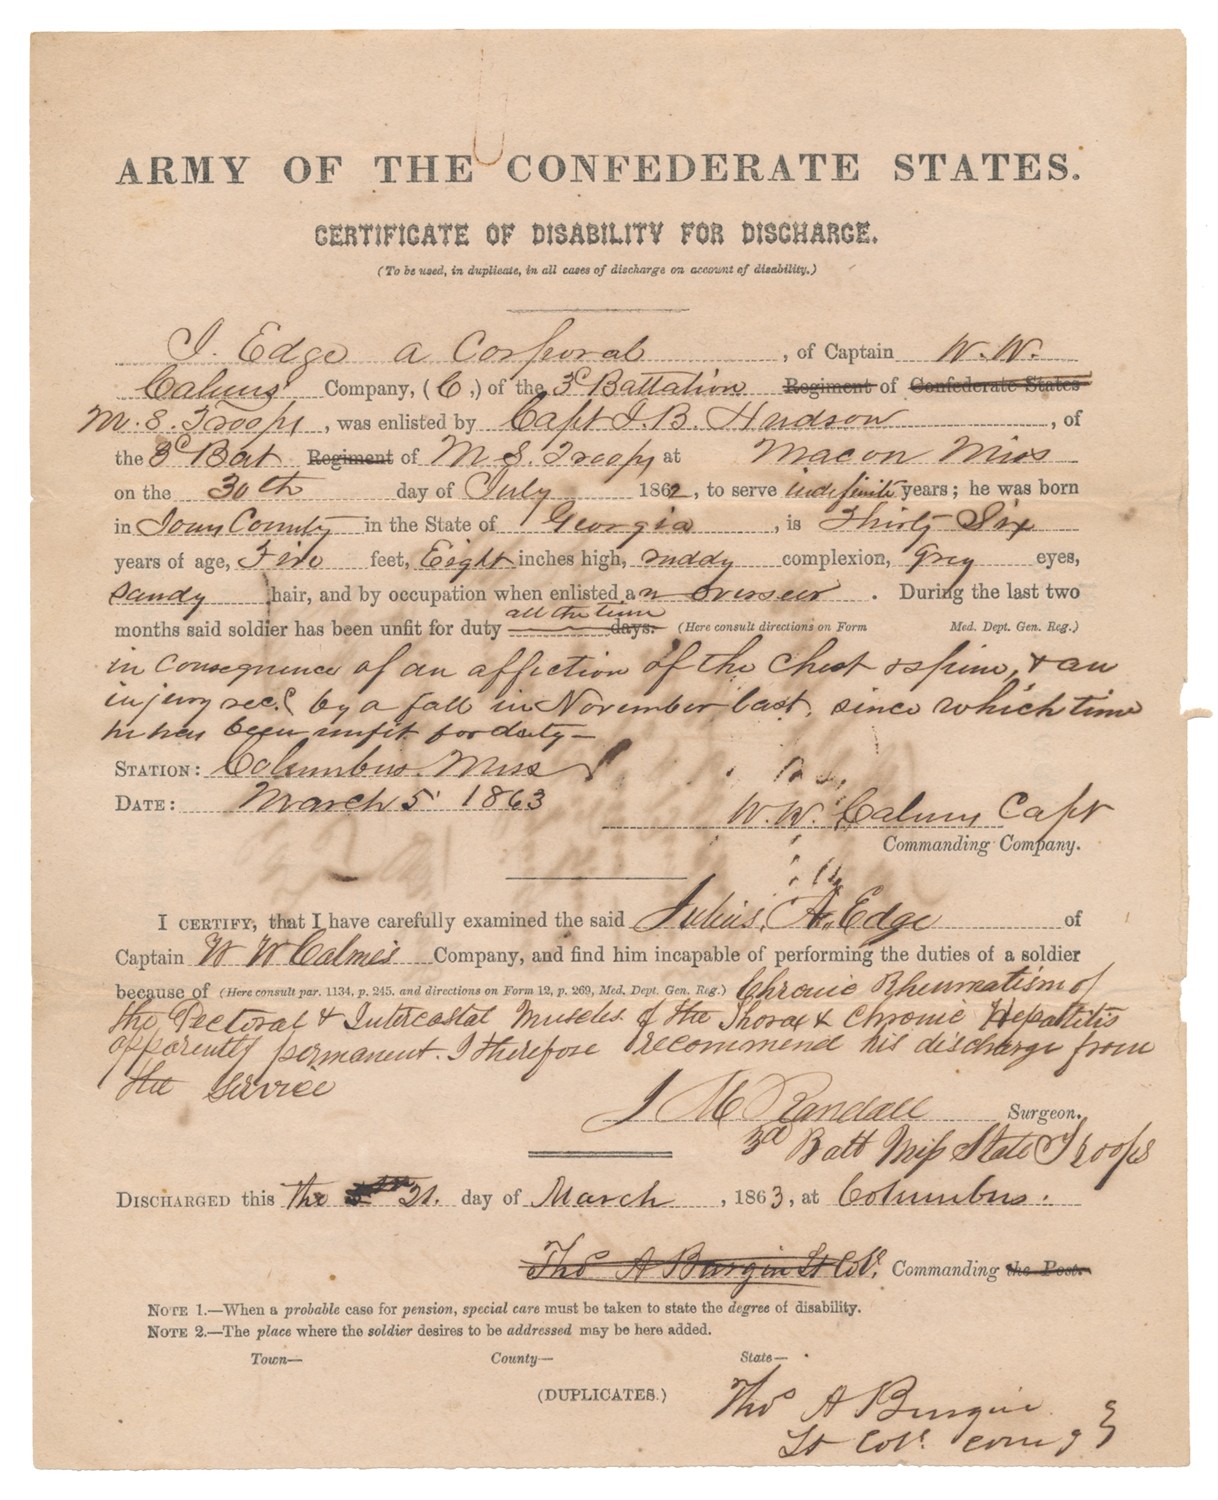 ARMY OF THE CONFEDERATE STATES.
CERTIFICATE OF DISABILITY FOR DISCHARGE.
(To be used, in duplicate, in all cases of discharge on account of disability.)
J. Edge a Corporal, of Captain W. W.
Calmes' Company, (C,) of the 3d Battalion Regiment of Confederate States
M. S. Troops, was enlisted by Capt J. B. Hudson, of
the 3d Bat Regiment of M S. Troops at Macon Miss
on the 30th day of July 1862, to serve indefinite years; he was born
in County in the State of Georgia, is Thirty Six
years of age, Five feet, Eight inches high, ruddy complexion, Grey eyes,
Sandy hair, and by occupation when enlisted an overseer. During the last two
months said soldier has been unfit for duty all the time days. (Here consult directions on Form Med. Dept. Gen. Reg.)
in consequence of an affection of the chest & spine, & an
injury recd by a fall in November last, since which time
he has been unfit for duty—
STATION: Columbus Miss
DATE: March 5 1863
W. W. Calmes Capt
Commanding Company.
I CERTIFY, that I have carefully examined the said Julius A. Edge of
Captain W W Calmes Company, and find him incapable of performing the duties of a soldier
because of (Here consult par. 1134, p. 245. and directions on Form 12, p. 269, Med. Dept. Gen. Reg.) Chronic Rheumatism of
the Pectoral & Intercostal Muscles of the Thorax & Chronic Hepatitis
apparently permanent. I therefore recommend his discharge from
the service
J M Randall Surgeon.
3d Batt Miss State Troops
DISCHARGED this the 21. day of March, 1863, at Columbus.
Thos A Burgin Lt Col. Commanding the Post.
NOTE 1.—When a probable case for pension, special care must be taken to state the degree of disability.
NOTE 2.—The place where the soldier desires to be addressed may be here added.
Town— County— State—
(DUPLICATES.)
Thos A Burgin
Lt Col. comg